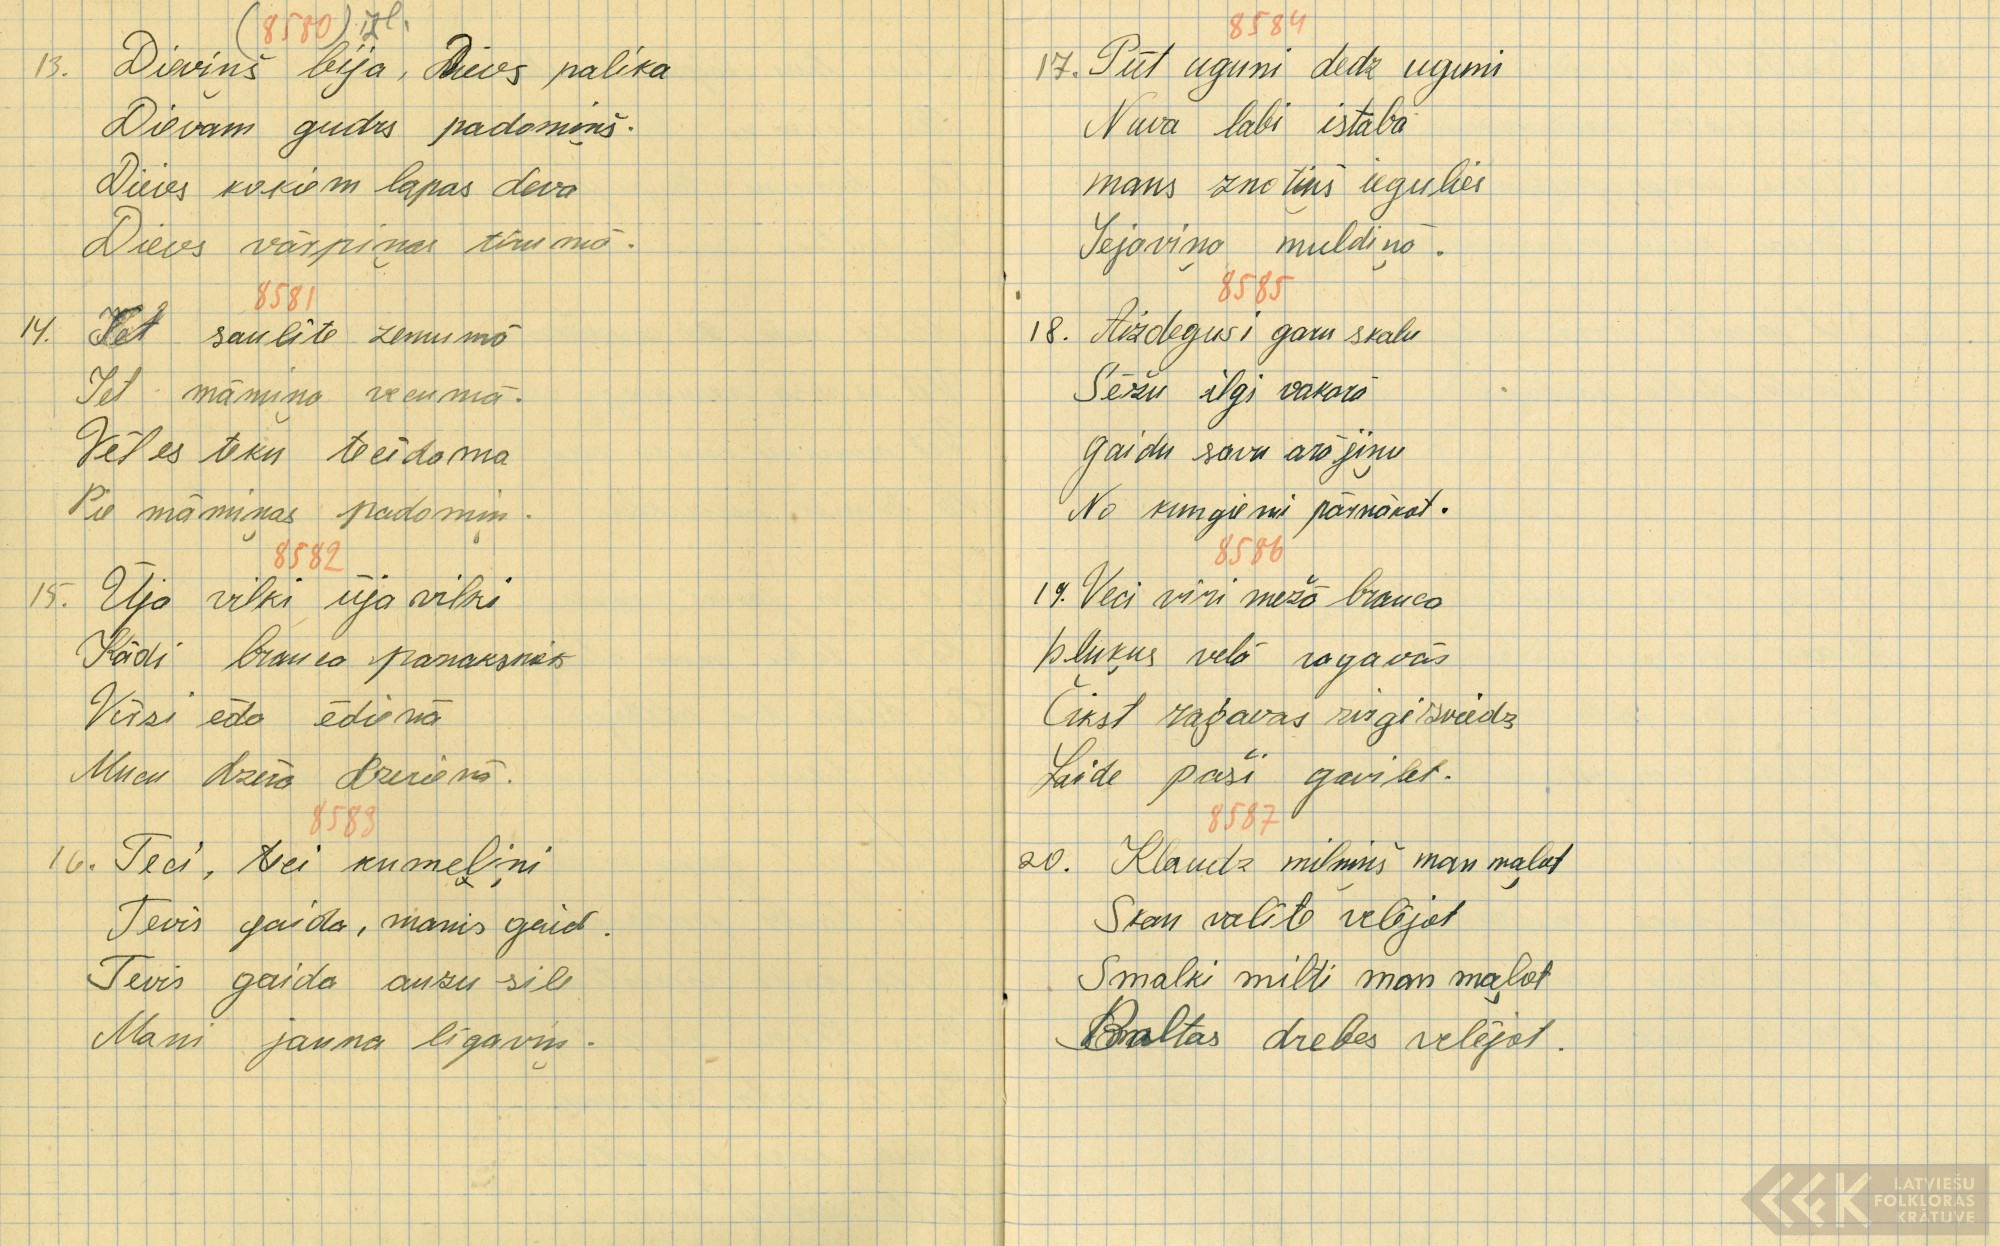 (8580) izl.
13. Dieviņš bija, Dievs palika
Dievam gudrs padomiņš.
Dievs kokiem lapas deva
Dievs vārpiņas tīrumā.
8581
14. Iet saulīte zemumā
Iet māmiņa vecumā.
Vēl es teku teēdama
Pie māmiņas padomiņ.
8582
15. Ūja vilki ūja vilki
Kādi brauca panaksnick
Vērsi ēda ēdienā
Mucu dzēra dzērienā.
8583
16. Teci, teci kumeļiņi
Tevis gaida, manis gaid.
Tevis gaida auzu sile
Mani jauna līgaviņ.
8584
17. Pūt uguni dedz uguni
Nava labi istabā
mans znotiņš iegulies
Jejaviņa muldiņā.
8585
18. Aizdegusi garu skalu
Sēžu ilgi vakarā
gaidu savu arājiņu
No kungiemi pārnākot.
8586
19. Veci vīri mežā brauca
pļukus velā ragavās
Čikst ragavas zirgi zviedz
Laide paši gavilēt.
8587
20. Klaudz milniņš man maļot
Skan valīte velējot
Smalki milti man maļot
Baltas drebes velējot.
LATVIEŠU
FOLKLORAS
KRĀTUVE